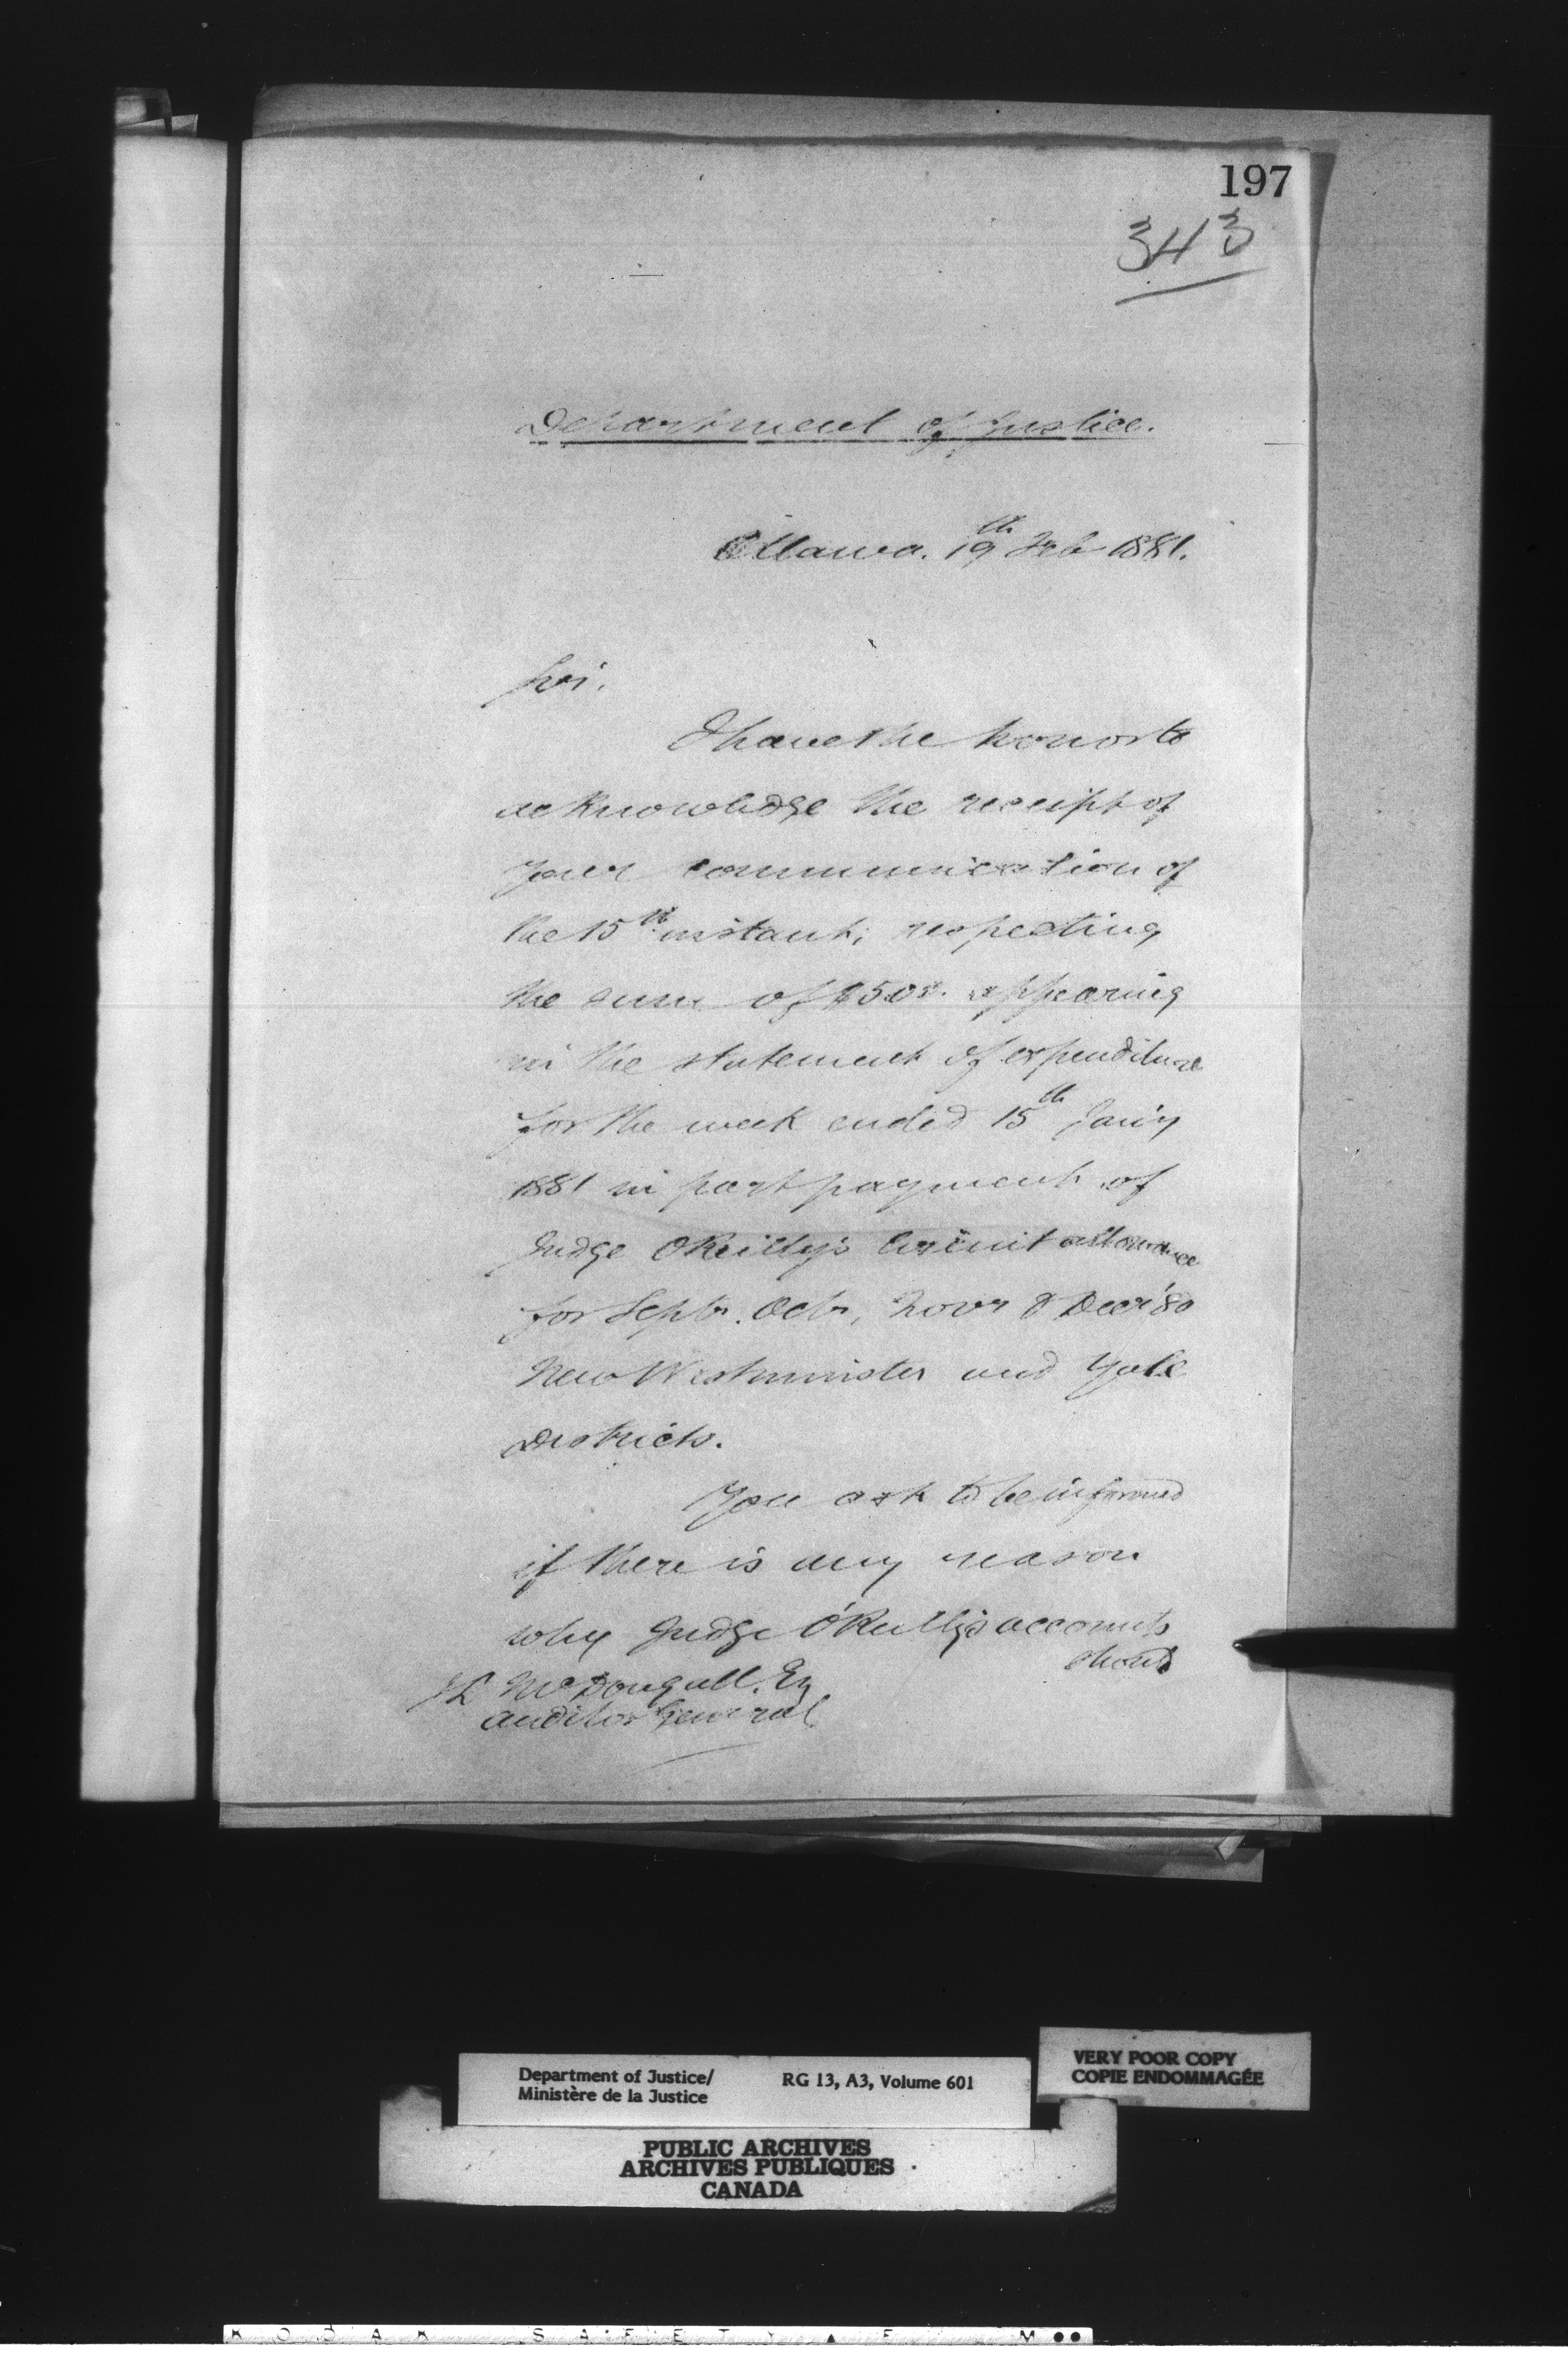 197
343
Department of Justice.
Ottawa. 19th Feb 1881.
Sir.
I have the honor to
acknowledge the receipt of
your communication of
the 15th instant, respecting
the sum of $500. appearing
in the statement of expenditure
for the week ended 15th Jan'y
1881 in part payment of
Judge O'Reilly's Circuit allowance
for Septr. Octr, Novr & Decr '80
New Westminster and Yale
Districts.
You ask to be informed
if there is any reason
why Judge O'Reilly's accounts
should
J L McDougall. Esq
Auditor General.
Department of Justice/ RG 13, A3, Volume 601
Ministère de la Justice
VERY POOR COPY
COPIE ENDOMMAGÉE
PUBLIC ARCHIVES
ARCHIVES PUBLIQUES
CANADA
KODAK SAFETY FILM